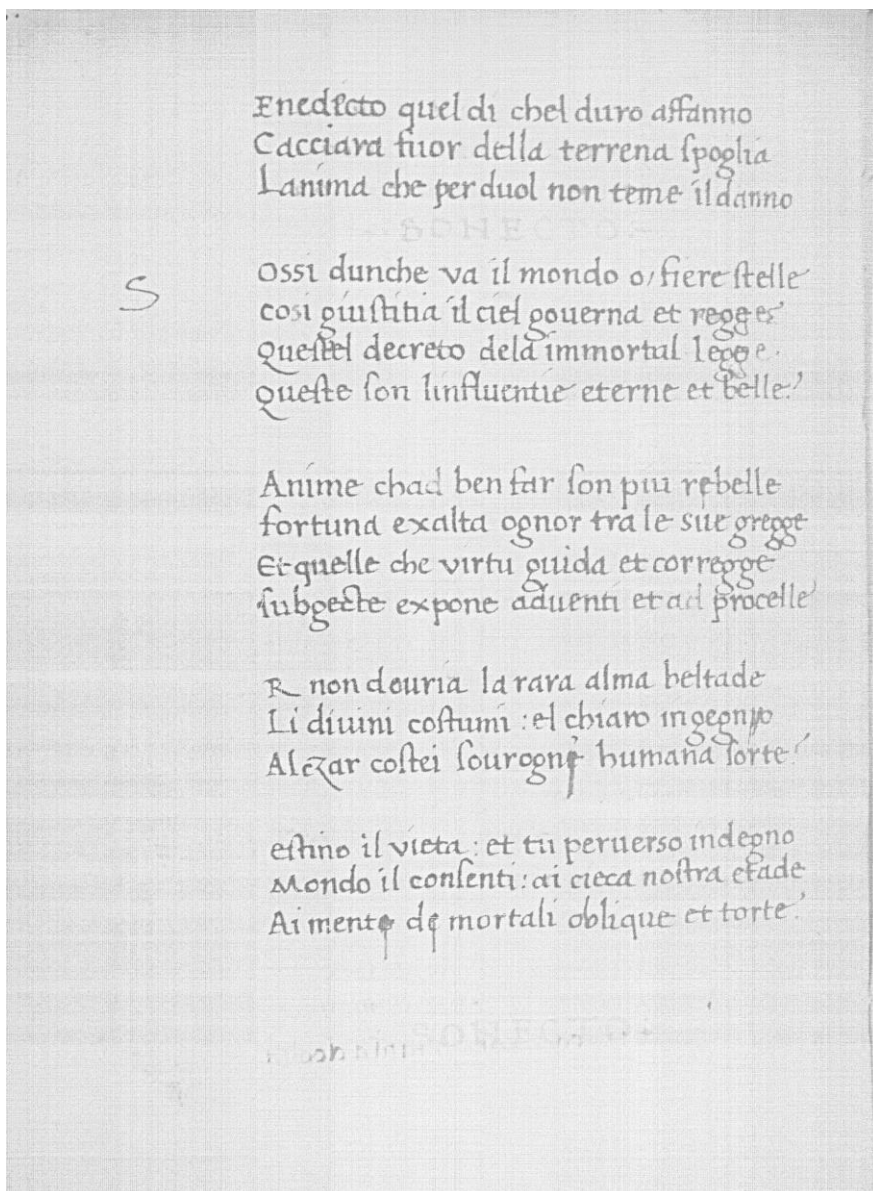 Enedecto quel di chel duro affanno
Cacciara fuor della terrena spoglia
Lanima che per duol non teme il danno
SONECTO
ossi dunche va il mondo o, fiere stelle
S
cosi giustitia il ciel gouerna et regge
Questel decreto dela immortal legge.
Queste son linfluentie eterne et belle.
Anime chad ben far son piu rebelle
fortuna exalta ognor tra le sue gregge
Et quelle che virtu guida et corregge
subgecte expone aduenti et ad procelle
R non douria la rara alma beltade
Li diuini costumi : el chiaro ingegnio
Alczar costei sourogne humana sorte.
estino il vieta : et tu peruerso indegno
Mondo il consenti : ai cieca nostra etade
Ai mente de mortali oblique et torte.
SONECTO